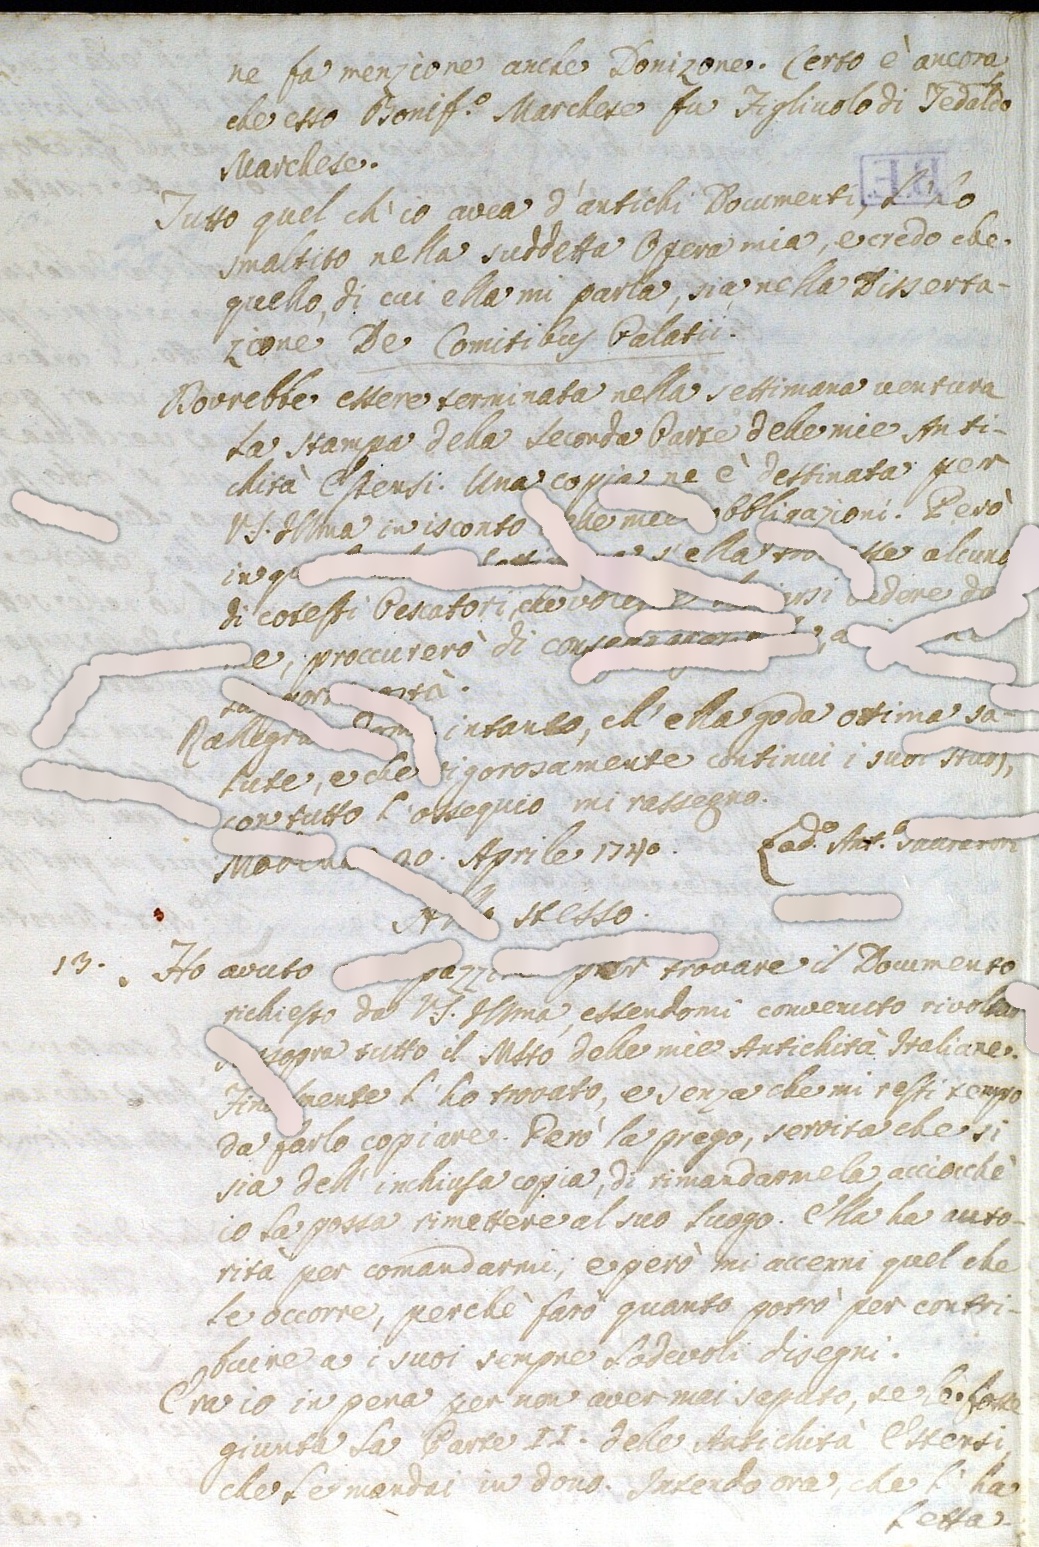 ne fa menzione anche Donizone. Certo è ancora
che esso Bonif.º Marchese fu Figliuolo di Tedaldo
Marchese.
Tutto quel ch' io avea d'antichi Documenti, l' ho
smaltito nella suddetta Opera mia, e credo che
quello, di cui ella mi parla, sia nella Disserta-
zione De Comitibus Palatii.
Dovrebbe essere terminata nella settimana ventura
la stampa della Seconda Parte delle mie Anti-
chità Estensi. Una copia ne è destinata per
V.S. Illma in isconto mie obbligazioni. Però
in s'ella alcuno
di cotesti Pescatori, che vedere da
me, proccurerò di

intanto, ch' ella goda ottima sa-
lute, e che rigorosamente continui i suoi studj,
con tutto l'ossequio mi rassegno.
20. Aprile 1740. Lod.º Ant.º Muratori
Allo stesso.
13. Ho avuto per trovare il Documento
richiesto da V.S. Illma, essendomi convenuto rivoltar
sossopra tutto il Msto delle mie Antichità Italiane.
Finalmente l' ho trovato, e senza che mi resti tempo
da farlo copiare. Però la prego, servita che si
sia dell' inchiusa copia, di rimandarmela, acciocchè
io la possa rimettere al suo luogo. Ella ha auto-
rità per comandarmi; e però mi accenni quel che
le occorre, perchè farò quanto potrò per contri-
buire a i suoi sempre lodevoli disegni.
Era io in pena per non aver mai saputo, se le fosse
giunta la Parte II. delle Antichità Estensi,
che le mandai in dono. Intendo ora, che l' ha
letta.